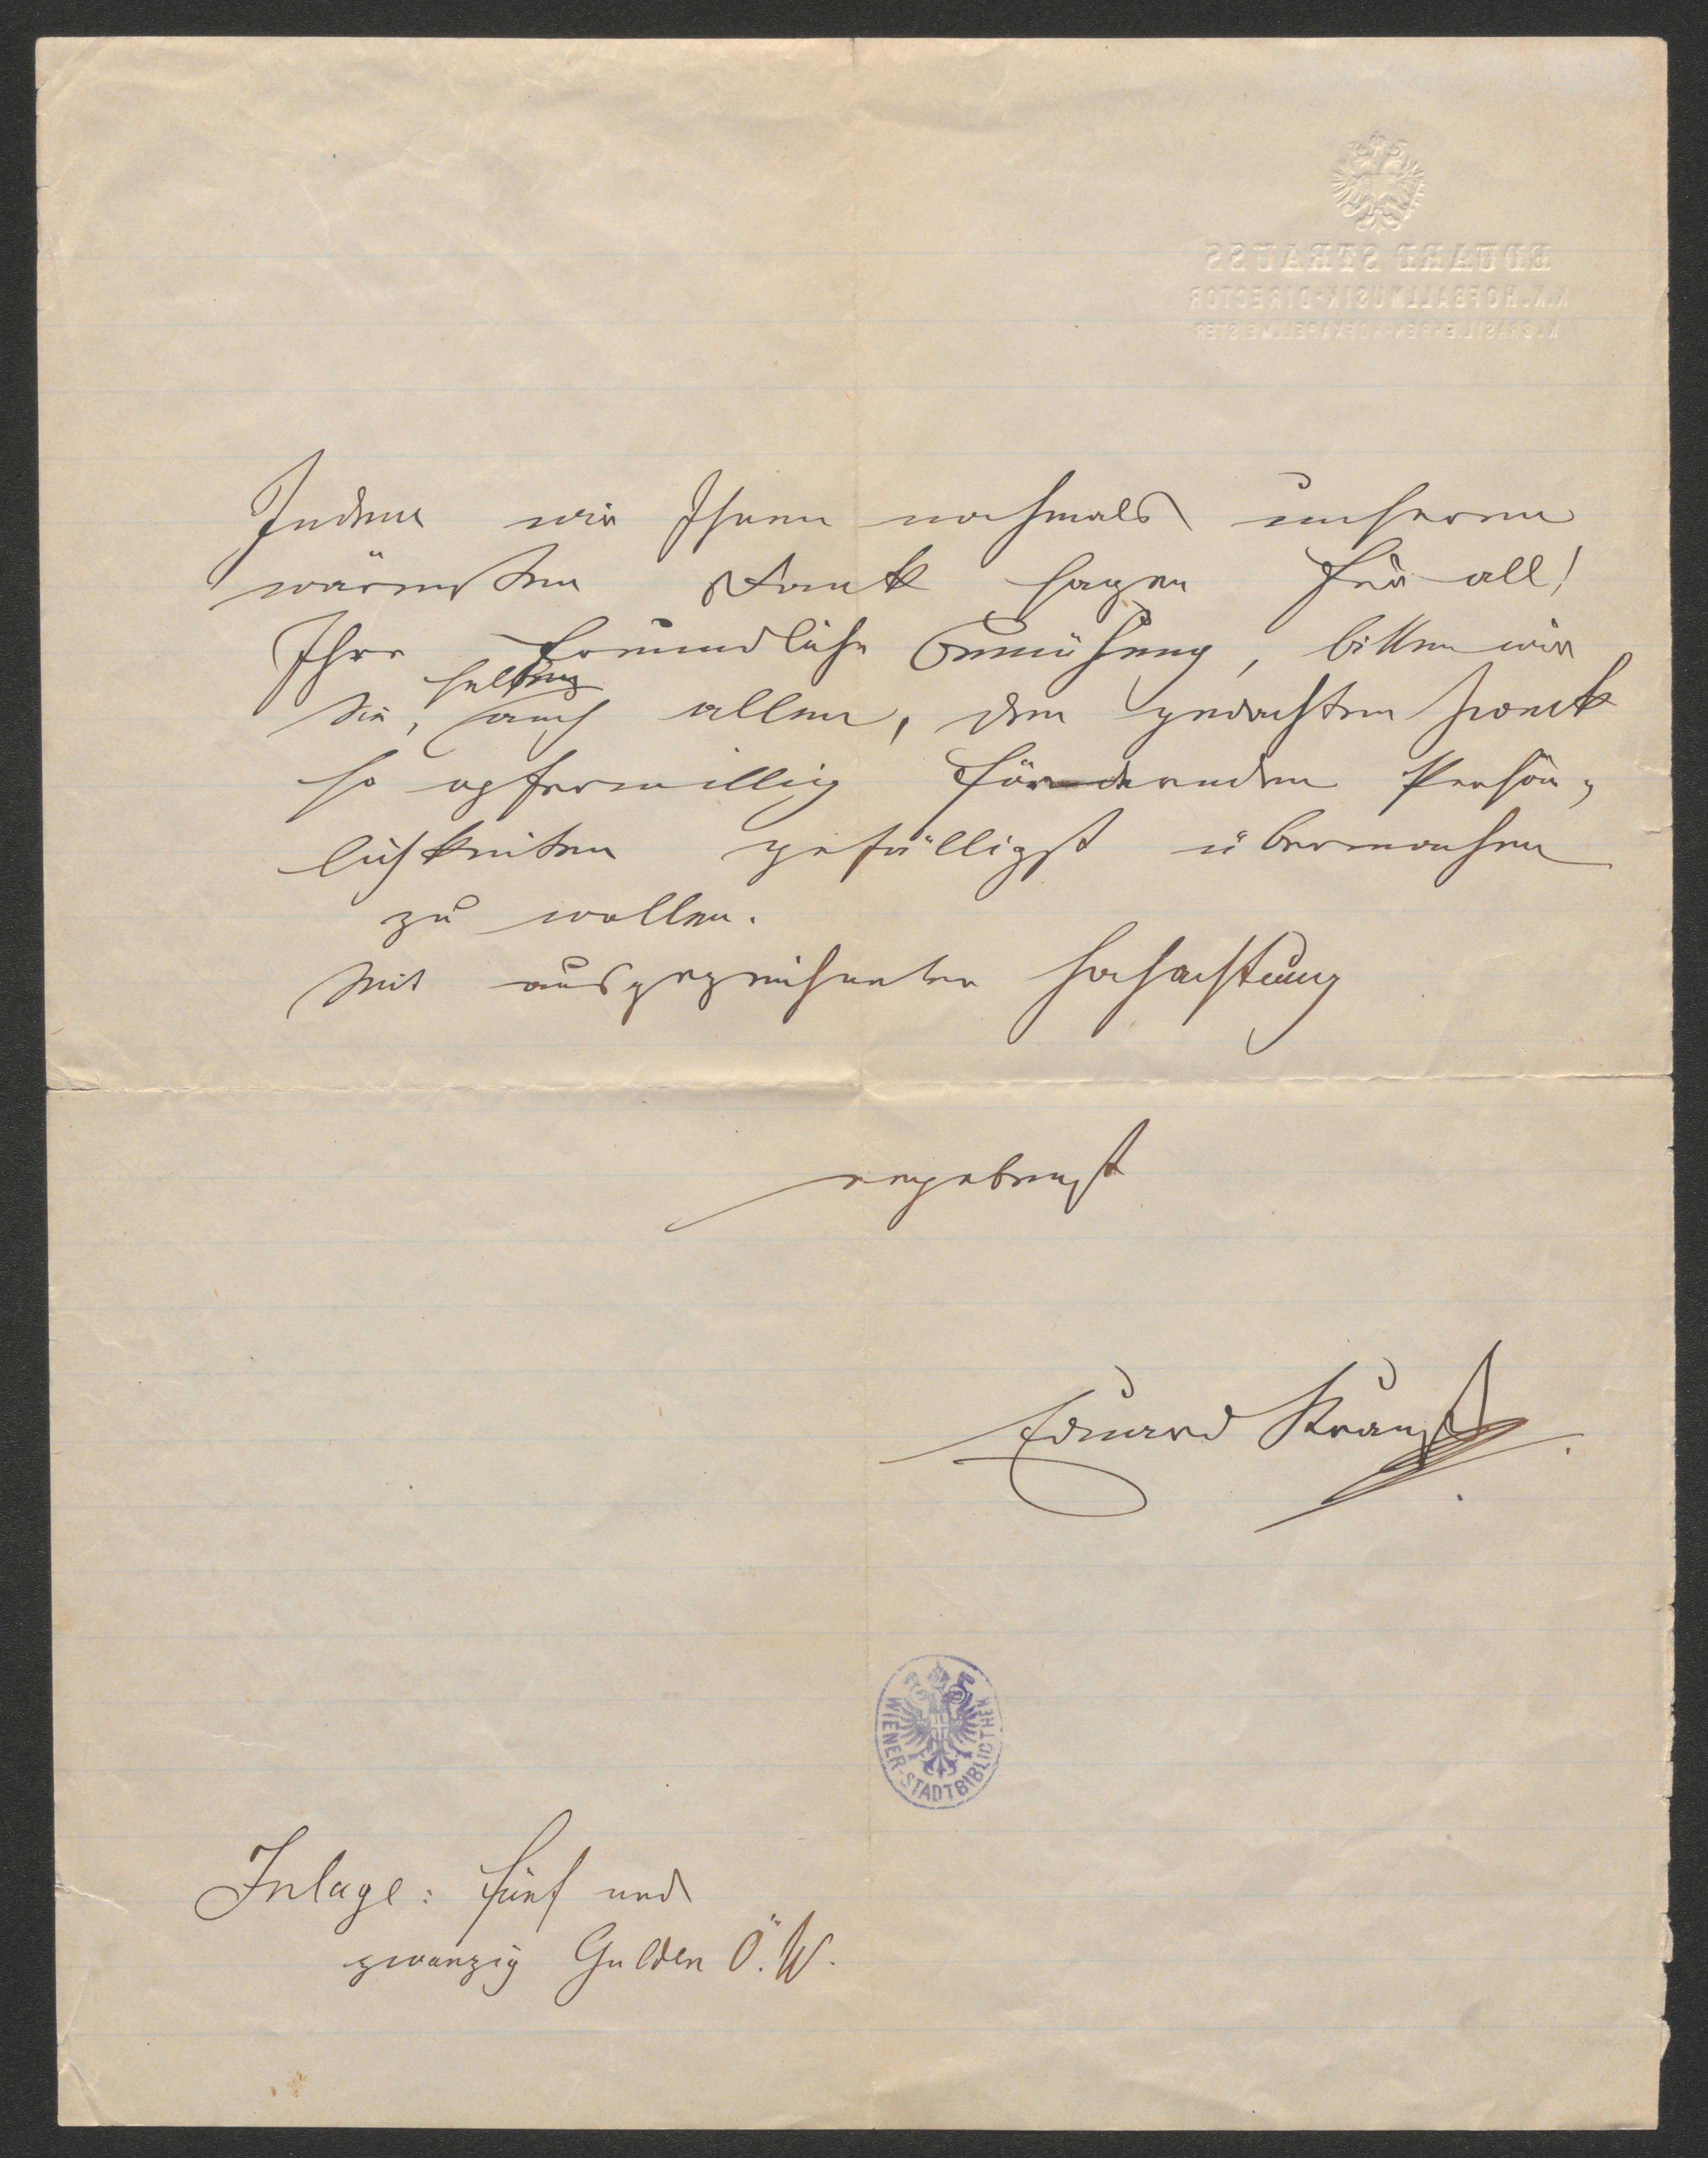 EDUARD STRAUSS
K.K. HOFBALLMUSIK-DIRECTOR
K. BRASIL. EHREN-HOFKAPELLMEISTER
Indem wir Ihnen nochmals unseren
wärmsten Dank sagen für all'
Ihre freundliche Bemühung, bitten wir
Sie, selben auch allen, den gedachten Zweck
so opferwillig fördernden Persön-
lichkeiten gefälligst übermachen
zu wollen.
Mit ausgezeichneter Hochachtung
ergebenst
Eduard Strauß
WIENER-STADTBIBLIOTHEK
Inlage: fünf und
zwanzig Gulden Ö. W.